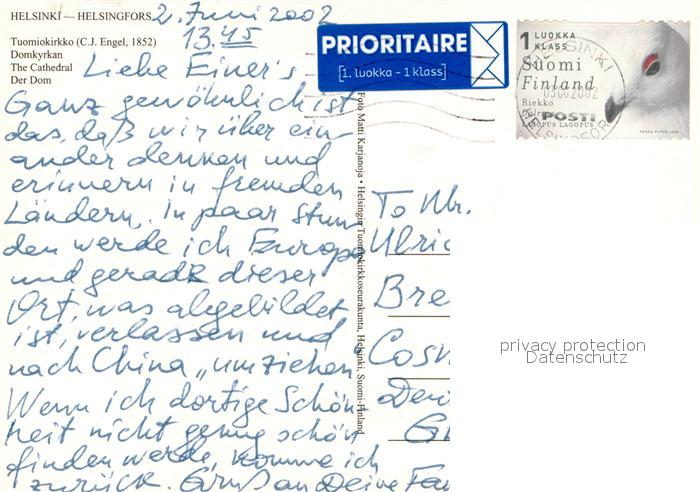 HELSINKI — HELSINGFORS
2. Juni 2002
13.45
Tuomiokirkko (C.J. Engel, 1852)
Domkyrkan
The Cathedral
Der Dom
Liebe Einer's
Ganz gewöhnlich ist
das, daß wir über ein-
ander denken und
erinnern in fremden
Ländern. In paar Stun
den werde ich Europa
und gerade dieser
Ort, was abgebildet
ist, verlassen und
nach China „umziehen
Wenn ich dortige Schön
heit nicht genug schön
finden werde, komme ich
zurück. Gruß an Deine Fam
Foto Matti Karjanoja • Helsingin Tuomiokirkkoseurakunta, Helsinki, Suomi-Finland
PRIORITAIRE
[1. luokka - 1 klass]
1 LUOKKA
KLASS
Suomi
Finland
Riekko
LAGOPUS LAGOPUS
POSTI
HELSINKI
03.06.2002
HELSINGFORS
To Mr.
Ulric
Bre
Cosm
privacy protection
Datenschutz